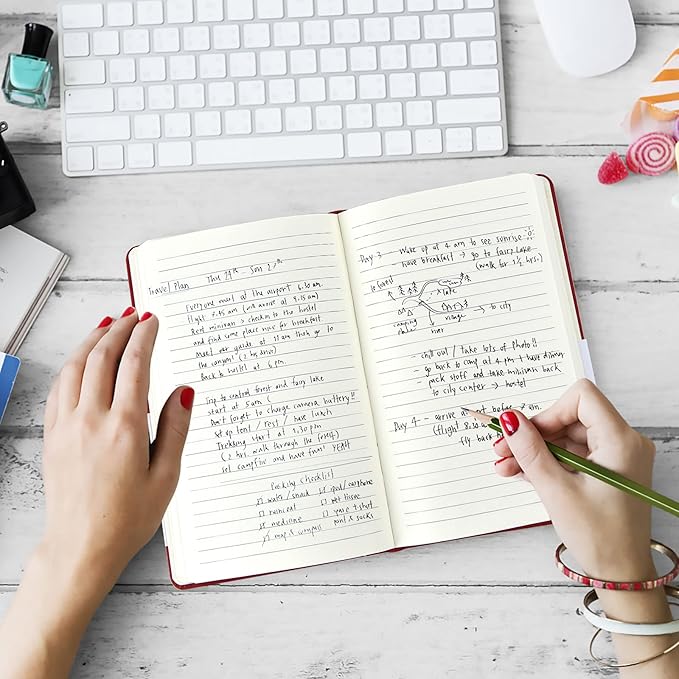 Travel Plan Thu 24th - Sun 27th
Everyone meet at the airport 6.30 am
flight 7.45 am (will arrive at 9.15 am)
Rent minivan > checkin to the hostel
and find some place nice for breakfast
Meet our guide at 11 am then go to
the canyon! (2 hrs drive)
Back to hostel at 6 pm
Trip to central forest and fairy lake
start at 5 am
Don't forget to change camera battery!!
Set up tent / rest / have lunch
Trekking start at 1.30 pm
(2 hrs walk through the forest)
set campfire and have fun! YEAH
Packing checklist
water / snack
ipod / earphone
raincoat
wet tissue
medicine
map & compass
& socks
Day 3 - Wake up at 4 am to see sunrise
have breakfast → go to fairy lake
(walk for 1 1/2 hrs.)
forest
lake
→ to city
camping place
river
village
- chill out / take lots of photo!!
- go back to camp at 4 pm + have dinner
- pack stuff and take minivan back
to city center → hostel
Day 4 - arrive
(flight 8.30
fly back